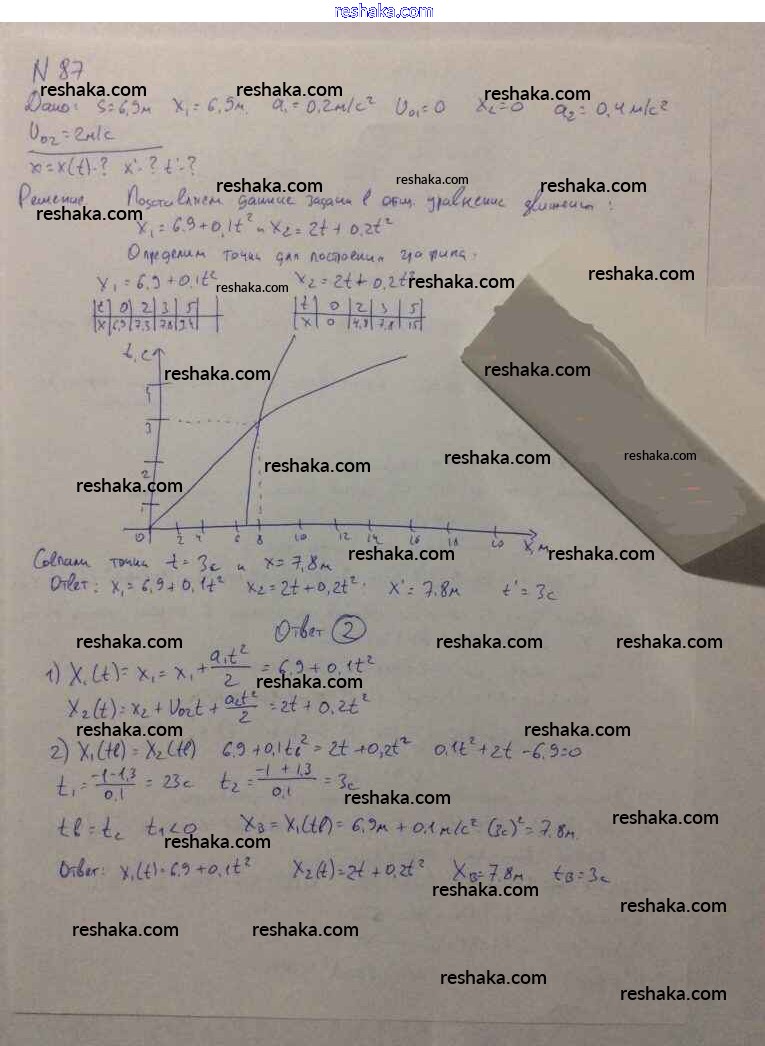 reshaka.com
N 87
reshaka.com reshaka.com reshaka.com
Дано: S=6,9м x₁=6,9м. a₁=0,2м/с² U₀₁=0 x₂=0 a₂=0,4м/с²
U₀₂=2м/с
x=x(t)-? x'-? t'-?
reshaka.com reshaka.com reshaka.com
Решение. Подставляем данные задачи в общ. уравнение движения:
reshaka.com
x₁=6.9+0,1t² и x₂=2t+0,2t²
Определим точки для построения графика.
x₁=6,9+0,1t² x₂=2t+0,2t²
reshaka.com reshaka.com reshaka.com
t 0 2 3 5 t 0 2 3 5
x 6,9 7,3 7,8 9,4 x 0 4,8 7,8 15
t, c
reshaka.com reshaka.com
3
reshaka.com reshaka.com reshaka.com
2
reshaka.com
1
0 2 4 6 8 10 12 14 16 18 20 x, м
reshaka.com reshaka.com
Совпали точки t=3c и x=7,8м
Ответ: x₁=6,9+0,1t² x₂=2t+0,2t². x'=7.8м t'=3c
Ответ 2
reshaka.com reshaka.com reshaka.com
1) X₁(t)=x₁=x₁+a₁t²/2=6.9+0.1t²
reshaka.com
X₂(t)=x₂+U₀₂t+a₂t²/2=2t+0.2t²
reshaka.com reshaka.com
2) X₁(tв)=X₂(tв) 6.9+0.1tв²=2t+0,2t² 0.1t²+2t-6.9=0
t₁=-1-1,3/0,1=23c t₂=-1+1,3/0,1=3c
reshaka.com
reshaka.com
tв=t₂ t₁<0 Xв=X₁(tв)=6,9м+0.1м/с²·(3c)²=7.8м
reshaka.com
Ответ: x₁(t)=6,9+0,1t² X₂(t)=2t+0,2t² Xв=7.8м tв=3c
reshaka.com
reshaka.com
reshaka.com reshaka.com
reshaka.com
reshaka.com